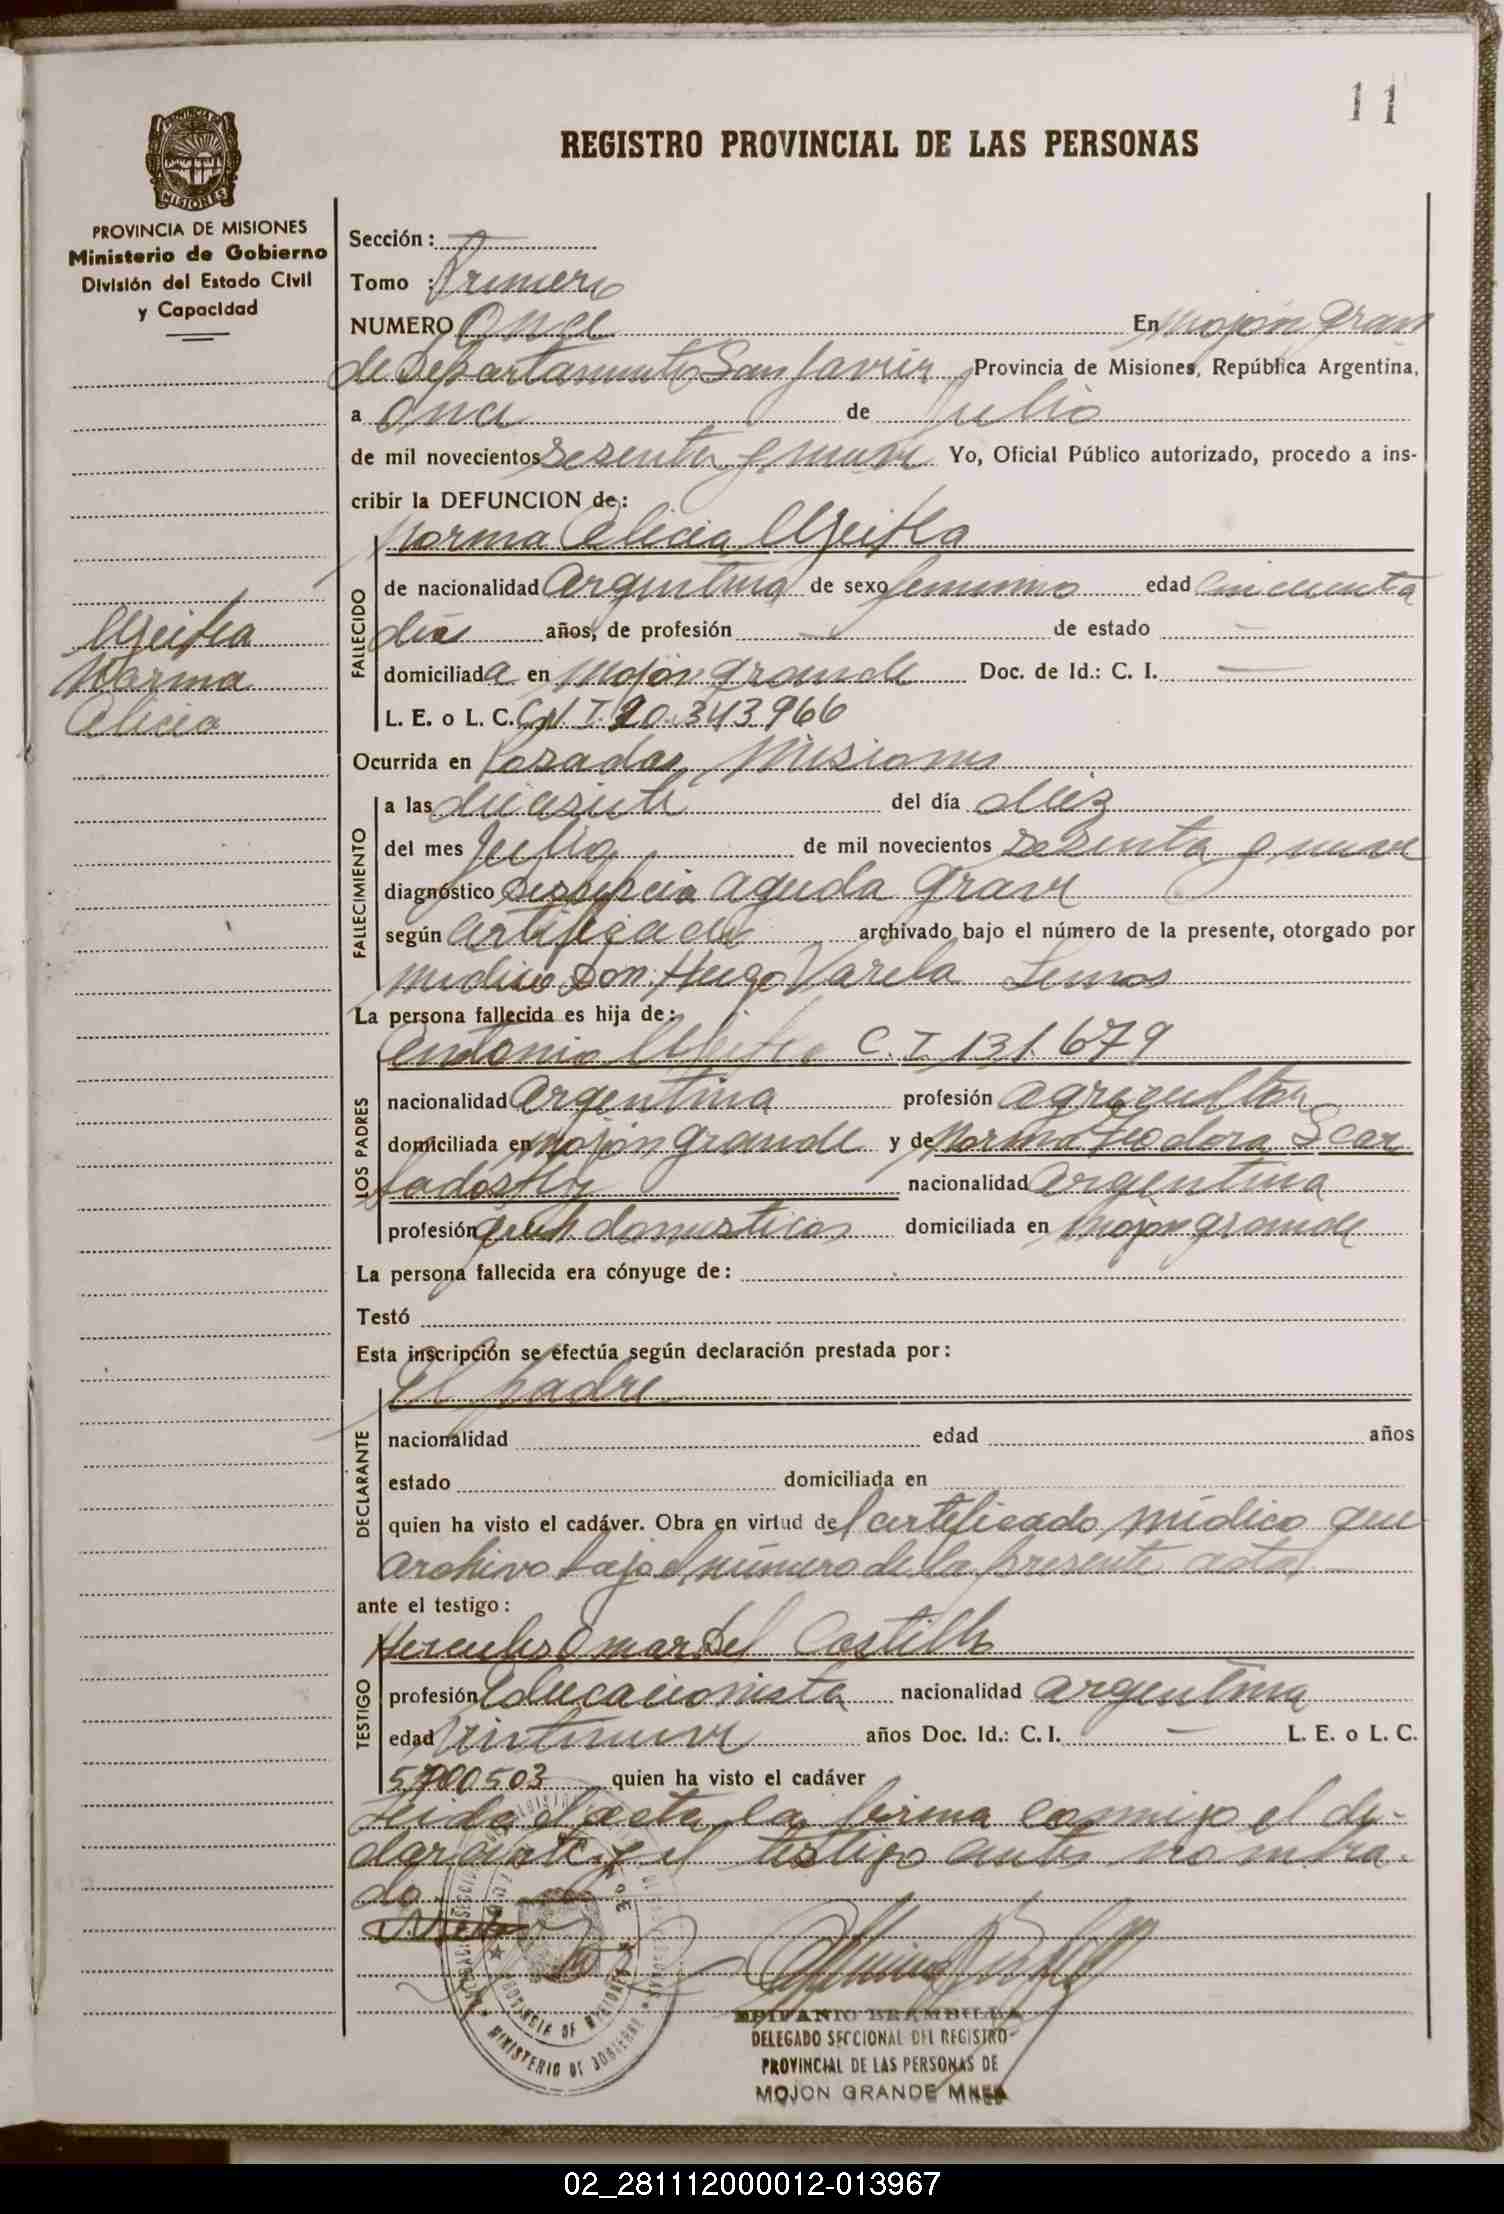 11
REGISTRO PROVINCIAL DE LAS PERSONAS
PROVINCIA DE MISIONES
Ministerio de Gobierno
División del Estado Civil
y Capacidad
Sección :
Tomo : Primero
NUMERO Once En Mojón Gran
de Departamento San Javier Provincia de Misiones, República Argentina,
a once de Julio
de mil novecientos sesenta y nueve Yo, Oficial Público autorizado, procedo a ins-
cribir la DEFUNCION de:
Norma Alicia
FALLECIDO
de nacionalidad Argentina de sexo femenino edad cincuenta
día años, de profesión — de estado —
domiciliada en Mojón grande Doc. de Id.: C. I. —
L. E. o L. C. 20.343966
Norma
Alicia
Ocurrida en Posadas, Misiones
FALLECIMIENTO
a las diecisiete del día diez
del mes Julio de mil novecientos sesenta y nueve
diagnóstico aguda grave
según archivado bajo el número de la presente, otorgado por
médico Don: Hugo Varela Lemos
La persona fallecida es hija de:
Antonio C. I. 131.679
LOS PADRES
nacionalidad Argentina profesión agricultor
domiciliada en Mojón grande y de Norma Teodora
nacionalidad Argentina
profesión domesticos domiciliada en Mojon grande
La persona fallecida era cónyuge de:
Testó
Esta inscripción se efectúa según declaración prestada por:
El padre
DECLARANTE
nacionalidad edad años
estado domiciliada en
quien ha visto el cadáver. Obra en virtud del certificado médico que
archivo bajo el número de la presente acta
ante el testigo:
Hercules Omar Del Castillo
TESTIGO
profesión Educacionista nacionalidad argentina
edad Veintinueve años Doc. Id.: C. I. — L. E. o L. C.
quien ha visto el cadáver
Leida el acta la firma conmigo el de-
clarante y el testigo antes nombra-
do
PROVINCIA DE MISIONES
MINISTERIO DE GOBIERNO
EPIFANIO BRAMBILLA
DELEGADO SECCIONAL DEL REGISTRO
PROVINCIAL DE LAS PERSONAS DE
MOJON GRANDE MNES
02_281112000012-013967